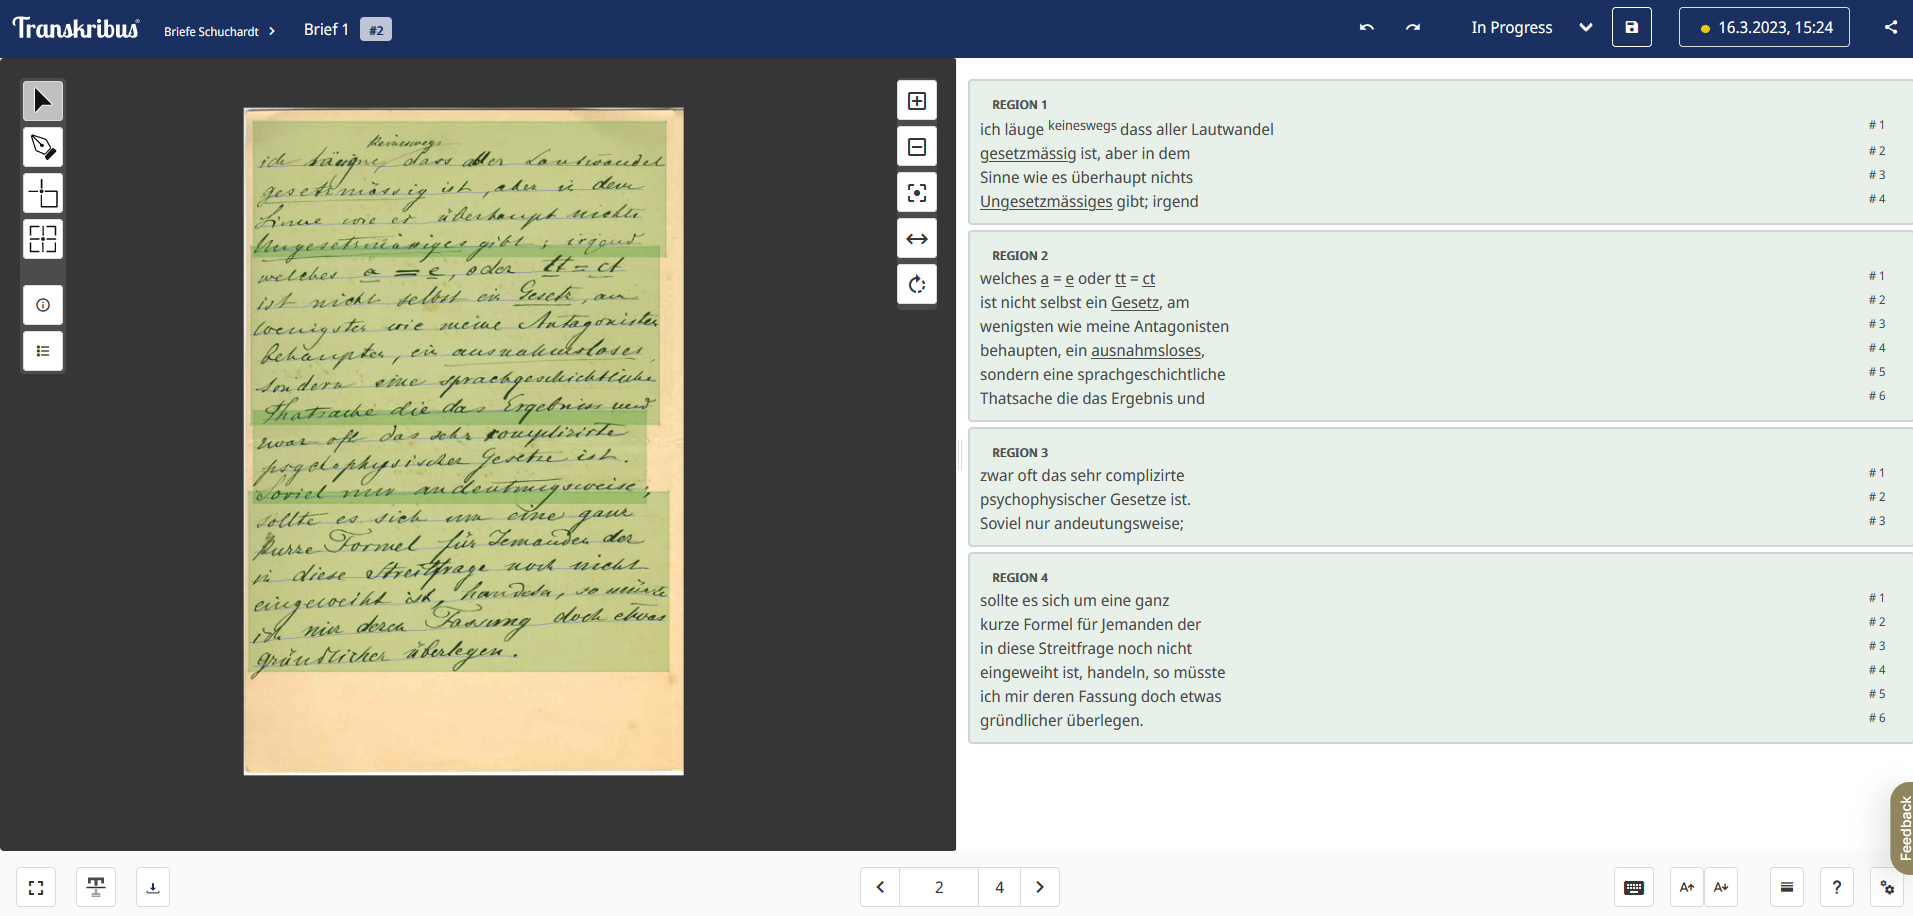 Transkribus
Briefe Schuchardt
Brief 1
#2
In Progress
16.3.2023, 15:24
keineswegs
ich läugne, dass aller Lautwandel
gesetzmässig ist, aber in dem
Sinne wie es überhaupt nichts
Ungesetzmässiges gibt; irgend
welches a = e, oder tt = ct
ist nicht selbst ein Gesetz, am
wenigsten wie meine Antagonisten
behaupten, ein ausnahmsloses,
sondern eine sprachgeschichtliche
Thatsache die das Ergebniss und
zwar oft das sehr complizirte
psychophysischer Gesetze ist.
Soviel nur andeutungsweise;
sollte es sich um eine ganz
kurze Formel für Jemanden der
in diese Streitfrage noch nicht
eingeweiht ist, handeln, so müsste
ich mir deren Fassung doch etwas
gründlicher überlegen.
REGION 1
ich läuge keineswegs dass aller Lautwandel #1
gesetzmässig ist, aber in dem #2
Sinne wie es überhaupt nichts #3
Ungesetzmässiges gibt; irgend #4
REGION 2
welches a = e oder tt = ct #1
ist nicht selbst ein Gesetz, am #2
wenigsten wie meine Antagonisten #3
behaupten, ein ausnahmsloses, #4
sondern eine sprachgeschichtliche #5
Thatsache die das Ergebnis und #6
REGION 3
zwar oft das sehr complizirte #1
psychophysischer Gesetze ist. #2
Soviel nur andeutungsweise; #3
REGION 4
sollte es sich um eine ganz #1
kurze Formel für Jemanden der #2
in diese Streitfrage noch nicht #3
eingeweiht ist, handeln, so müsste #4
ich mir deren Fassung doch etwas #5
gründlicher überlegen. #6
Feedback
2
4
A
A
?